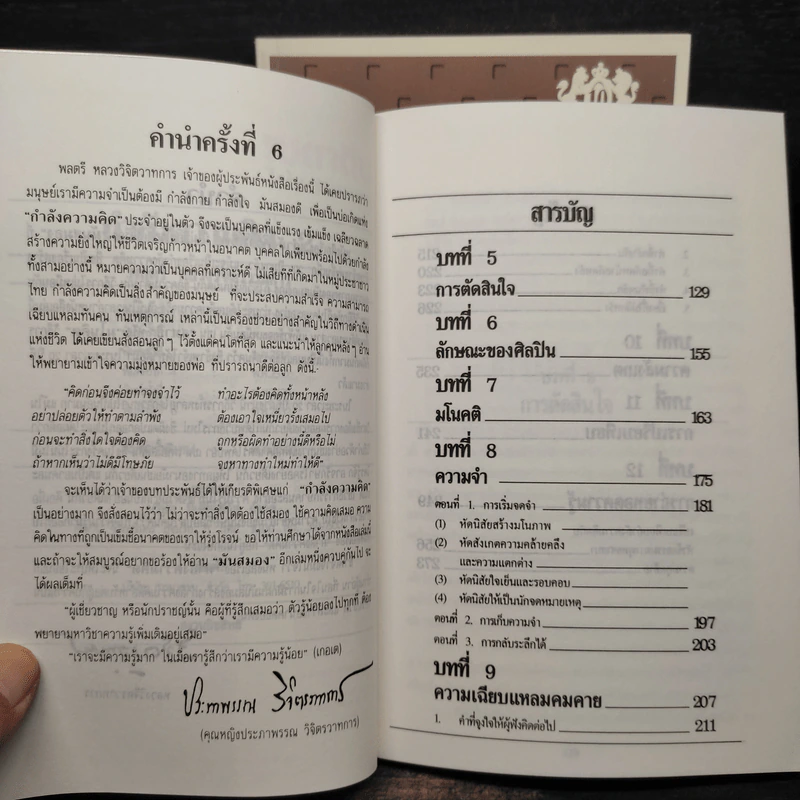 คำนำครั้งที่ 6
พลตรี หลวงวิจิตวาทการ เจ้าของผู้ประพันธ์หนังสือเรื่องนี้ ได้เคยปรารภว่า
มนุษย์เรามีความจำเป็นต้องมี กำลังกาย กำลังใจ มันสมองดี เพื่อเป็นบ่อเกิดแห่ง
"กำลังความคิด" ประจำอยู่ในตัว จึงจะเป็นบุคคลที่แข็งแรง เข้มแข็ง เฉลียวฉลาด
สร้างความยิ่งใหญ่ให้ชีวิตเจริญก้าวหน้าในอนาคต บุคคลใดเพียบพร้อมไปด้วยกำลัง
ทั้งสามอย่างนี้ หมายความว่าเป็นบุคคลที่เคราะห์ดี ไม่เสียทีที่เกิดมาในหมู่ประชาชาว
ไทย กำลังความคิดเป็นสิ่งสำคัญของมนุษย์ ที่จะประสบความสำเร็จ ความสามารถ
เฉียบแหลมทันคน ทันเหตุการณ์ เหล่านี้เป็นเครื่องช่วยอย่างสำคัญในวิถีทางดำเนิน
แห่งชีวิต ได้เคยเขียนสั่งสอนลูกๆ ไว้ตั้งแต่คนโตที่สุด และแนะนำให้ลูกคนหลังๆ อ่าน
ให้พยายามเข้าใจความมุ่งหมายของพ่อ ที่ปรารถนาดีต่อลูก ดังนี้.
"คิดก่อนจึงค่อยทำจงจำไว้ ทำอะไรต้องคิดทั้งหน้าหลัง
อย่าปล่อยตัวให้ทำตามลำพัง ต้องเอาใจเหนี่ยวรั้งเสมอไป
ก่อนจะทำสิ่งใดใจต้องคิด ถูกหรือผิดทำอย่างนี้ดีหรือไม่
ถ้าหากเห็นว่าไม่ดีมีโทษภัย จงหาทางทำใหม่ทำให้ดี"
จะเห็นได้ว่าเจ้าของบทประพันธ์ได้ให้เกียรติพิเศษแก่ "กำลังความคิด"
เป็นอย่างมาก จึงสั่งสอนไว้ว่า ไม่ว่าจะทำสิ่งใดต้องใช้สมอง ใช้ความคิดเสมอ ความ
คิดในทางที่ถูกเป็นเข็มชี้อนาคตของเราให้รุ่งโรจน์ ขอให้ท่านศึกษาได้จากหนังสือเล่มนี้
และถ้าจะให้สมบูรณ์อยากขอร้องให้อ่าน "มันสมอง" อีกเล่มหนึ่งควบคู่กันไป จะ
ได้ผลเต็มที่
"ผู้เชี่ยวชาญ หรือนักปราชญ์นั้น คือผู้ที่รู้สึกเสมอว่า ตัวรู้น้อยลงไปทุกที ต้อง
พยายามหาวิชาความรู้เพิ่มเติมอยู่เสมอ"
"เราจะมีความรู้มาก ในเมื่อเรารู้สึกว่าเรามีความรู้น้อย" (เกอเต)
ประภาพรรณ วิจิตรวาทการ
(คุณหญิงประภาพรรณ วิจิตรวาทการ)
10
สารบัญ
บทที่ 5
การตัดสินใจ 129
บทที่ 6
ลักษณะของศิลปิน 155
บทที่ 7
มโนคติ 163
บทที่ 8
ความจำ 175
ตอนที่ 1. การเริ่มจดจำ 181
(1) หัดนิสัยสร้างมโนภาพ
(2) หัดสังเกตความคล้ายคลึง
และความแตกต่าง
(3) หัดนิสัยใจเย็นและรอบคอบ
(4) หัดนิสัยให้เป็นนักจดหมายเหตุ
ตอนที่ 2. การเก็บความจำ 197
ตอนที่ 3. การกลับระลึกได้ 203
บทที่ 9
ความเฉียบแหลมคมคาย 207
1. คำที่จูงใจให้ผู้ฟังคิดต่อไป 211